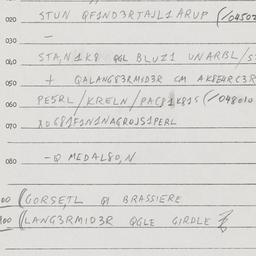 020 STUN QF1ND3RTAJL1 ARUP (/04502
030 —
040 STA,N1K8 QGL BLUZ1 UNARBL/S
050 + QALANG83RM1D3R CM AK8EHRC3R
060 PE5RL/KRELN/PAC81K815 (/048010
070 XDG81F1N1NAGROJS1PERL
080 -Q MEDAL80,N
00 (GORSE,TL QI BRASSIERE
00 (LANG3RM1D3R QGLE GIRDLE